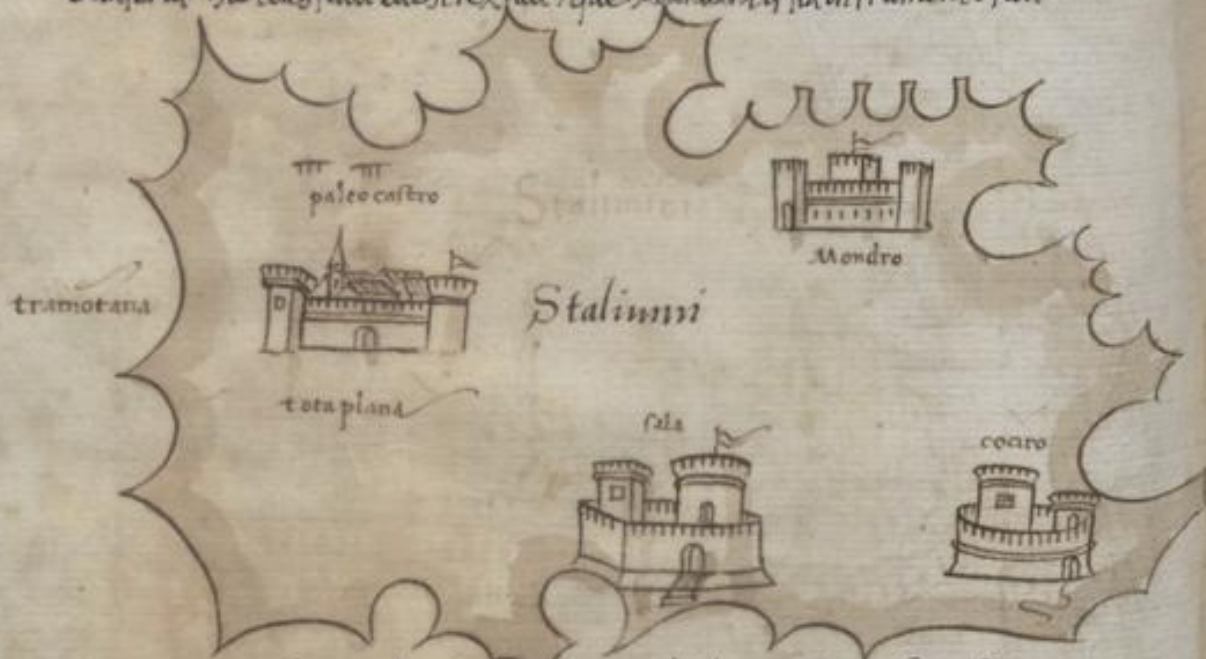 paleo castro
Stalimini
Mondro
tramotana
Stalimni
tota plana
sala
cociro